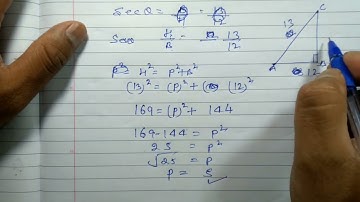 Secθ =
Secθ H/B = 13/12
H² = P²+B²
(13)² = (P)²+ (12)²
169 = (P)² + 144
169-144 = P²
25 = P²
√25 = P
P = 5
13
C
A
12